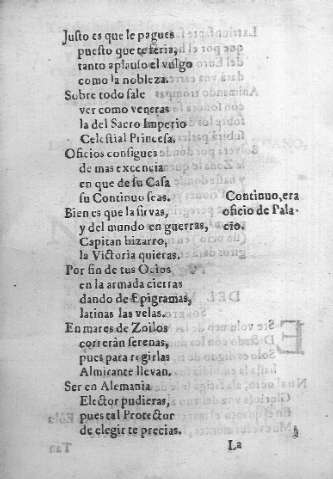 Justo es que le pagues
puesto que te feria,
tanto aplauso el vulgo
como la nobleza.
Sobre todo sale
ver como veneras
la del Sacro Imperio
Celestial Princesa.
Oficios consigues
de mas excencia
en que de su Casa
su Continuo seas.
Continuo, era
oficio de Pala-
cio.
Bien es que la sirvas,
y del mundo en guerras,
Capitan bizarro,
la Victoria quieras.
Por fin de tus Ocios
en la armada cierras
dando de Epigramas,
latinas las velas.
En mares de Zoilos
correràn serenas,
pues para regirlas
Almirante llevan.
Ser en Alemania
Elector pudieras,
pues tal Protector
de elegir te precias.
La